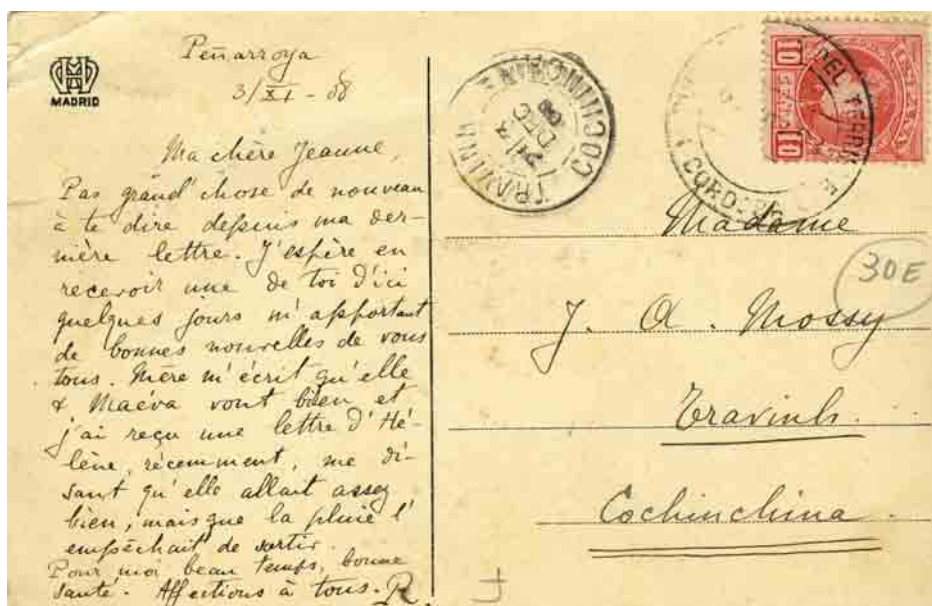 MADRID
Peñarroya
3/XI - 08
Ma chère Jeanne,
Pas grand'chose de nouveau
à te dire depuis ma der-
nière lettre. J'espère en
recevoir une de toi d'ici
quelques jours m'apportant
de bonnes nouvelles de vous
tous. Mère m'écrit qu'elle
& Maéva vont bien et
j'ai reçu une lettre d'Hé-
lène, récemment, me di-
sant qu'elle allait assez
bien, mais que la pluie l'
empêchait de sortir.
Pour moi, beau temps, bonne
santé. Affections à tous. R.
TRAVINH COCHINCHINE
DEC
08
ESPAÑA
10 10
DEL
Madame
30E
J. A. Mossy
Travinh
Cochinchina